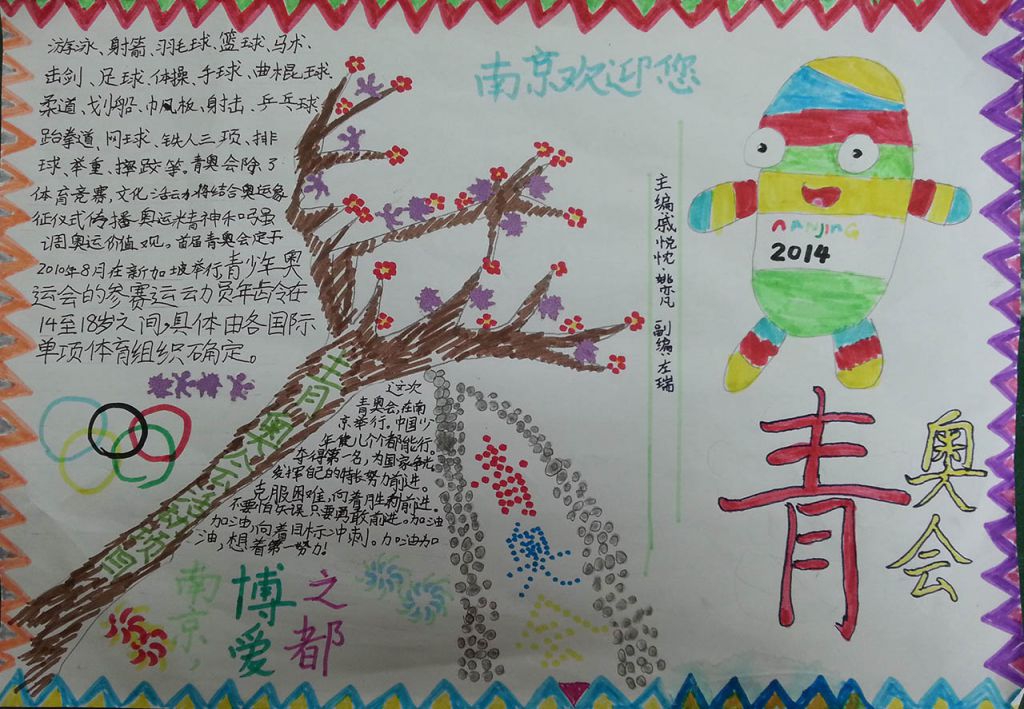 游泳、射箭、羽毛球、篮球、马术、
击剑、足球、体操、手球、曲棍球、
柔道、划船、巾风板、射击、乒乓球、
跆拳道、网球、铁人三项、排
球、举重、摔跤等。青奥会除了
体育竞赛，文化活动将结合奥运象
征仪式传播奥运精神和弘强
调奥运价值观。首届青奥会定于
2010年8月在新加坡举行青少年奥
运会的参赛运动员年龄令在
14至18岁之间，具体由各国际
单项体育组织确定。
南京欢迎您
主编戚悦忱·姚亦凡 副编左瑞
NANJING
2014
青奥会
这次
青奥会，在南
京举行。中国少
年健儿个个都能行。
夺得第一名，为国家争光
发挥自己的特长努力前进。
克服困难，向着胜利前进。
不要怕失误只要勇敢前进。加油
加油，向着目标冲刺。加油加
油，想着第一努力！
南京，
博爱
之都